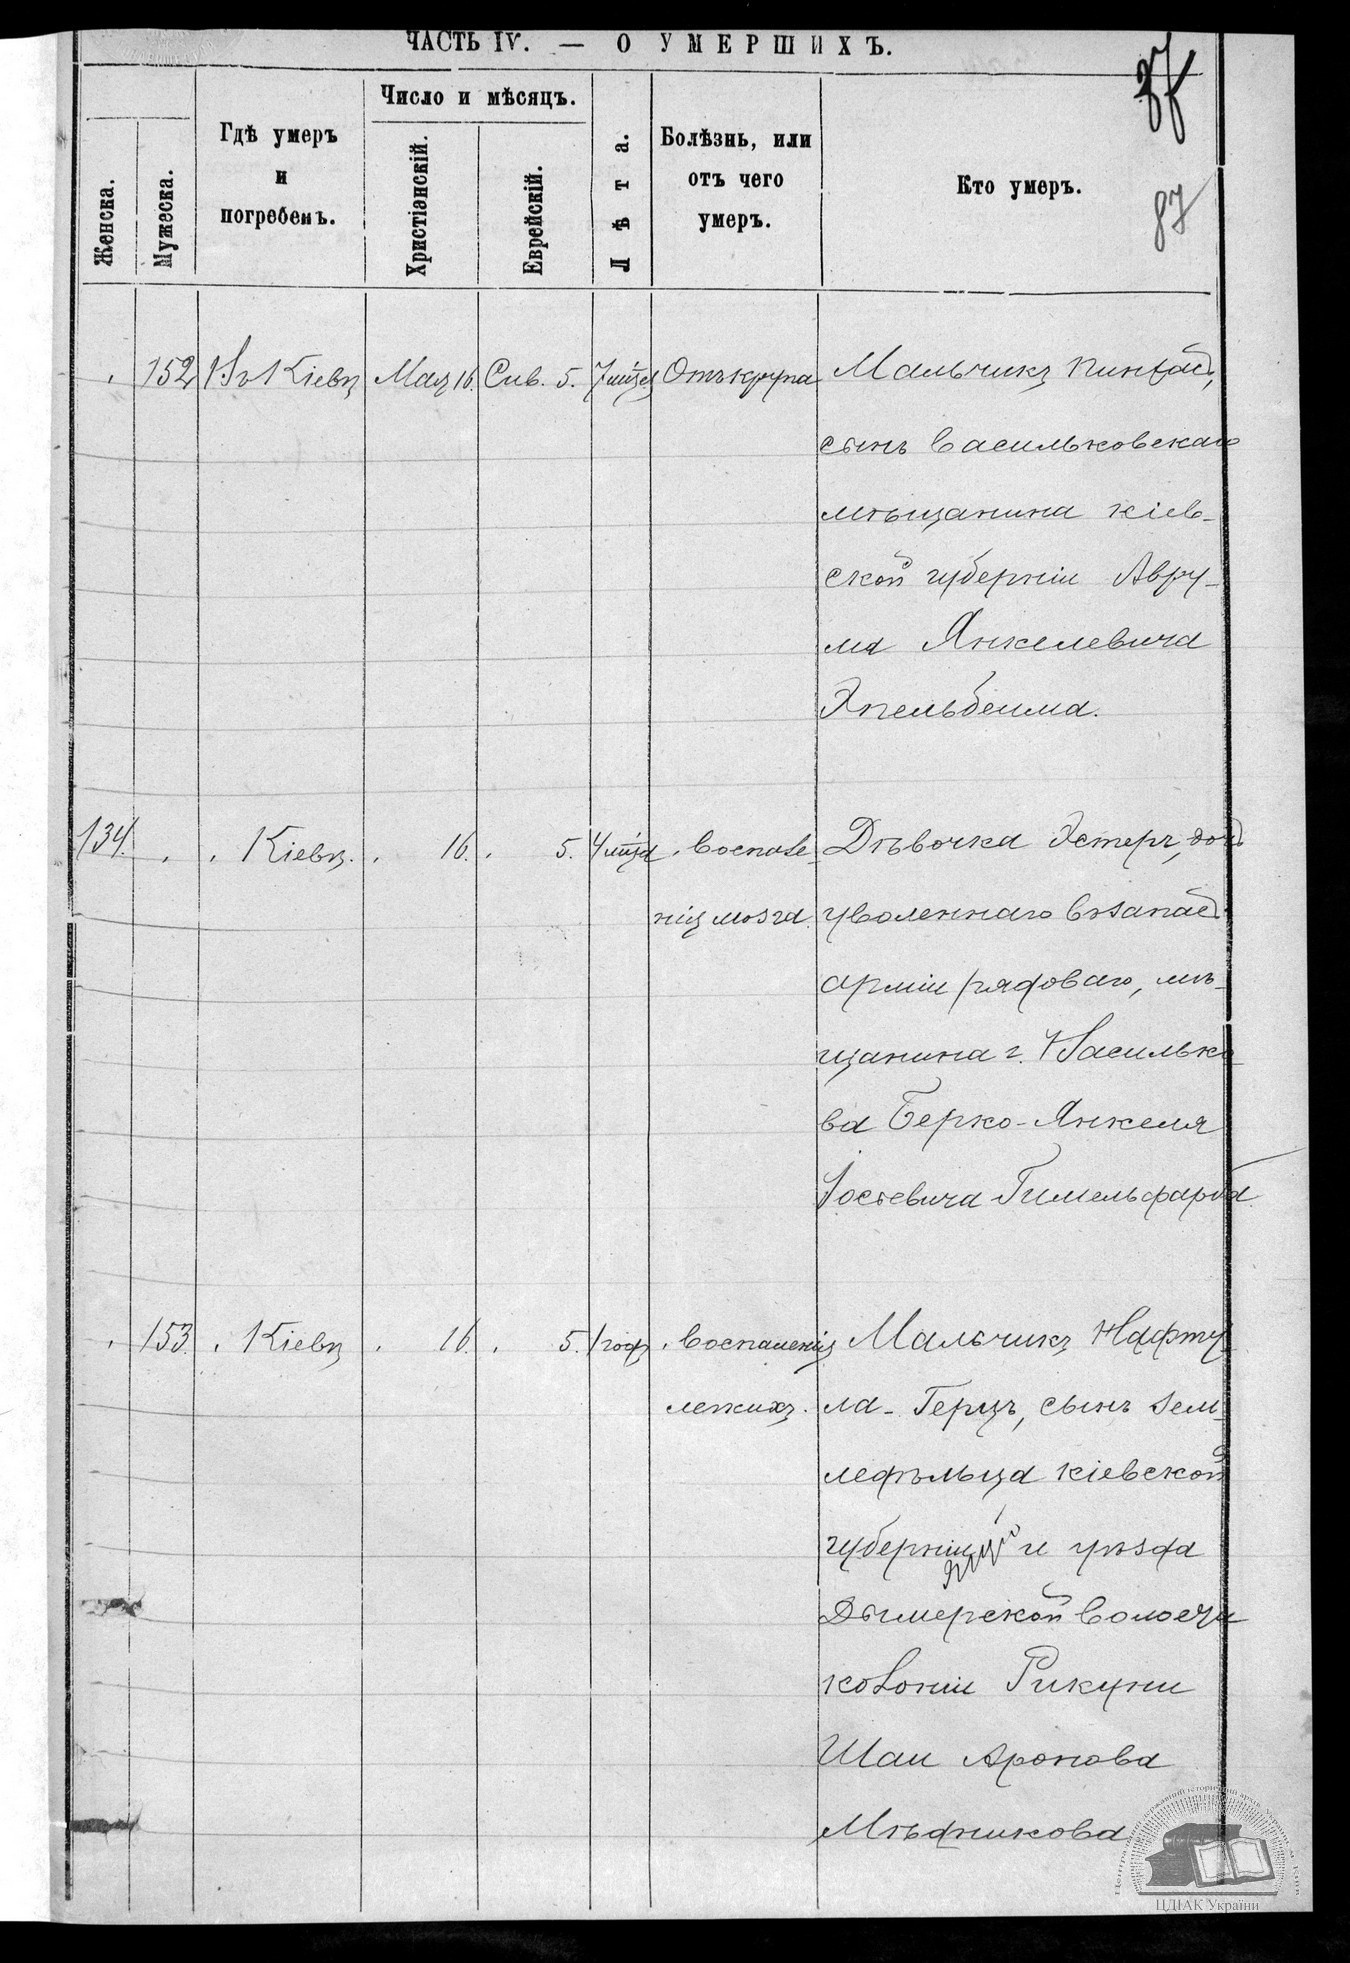 ЧАСТЬ IV. — О УМЕРШИХЪ.
87
Женска.
Мужеска.
Гдѣ умеръ
и
погребенъ.
Число и мѣсяцъ.
Христіанскій.
Еврейскій.
Лѣта.
Болѣзнь, или
отъ чего
умеръ.
Кто умеръ.
87
152 Въ Кіевѣ Мая 16. Сив. 5. 7 мѣс. Отъ крупа Мальчикъ Пинхас,
сынъ Васильковскаго
мѣщанина Кіев-
ской губерніи Авру-
ма Янкелевича
Эпельбейма.
134. Кіевѣ. 16. 5. 4 мѣс. Воспале- Дѣвочка Эстеръ, дочь
нія мозга. уволеннаго въ запас
арміи рядоваго, мѣ-
щанина г. Василько-
ва Берко-Янкеля
Іосевича Гимельфарба
153. Кіевѣ 16. 5. 1 год. Воспаленія Мальчикъ Нафту-
легкихъ. ла-Герцъ, сынъ зем-
ледѣльца Кіевской
губерніи и уѣзда
Дымерской волости
колоніи Рикуни
Шаи Аронова
Мѣдникова
ЦДІАК України